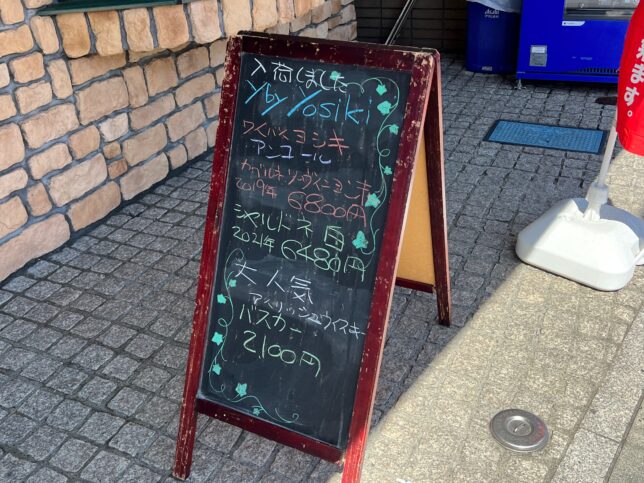 入荷しました
Y by Yosiki
ワイバイヨシキ
アンコール
カベルネソーヴィニヨン 赤
2019年 6800円
シャルドネ 白
2021年 6480円
大人気
アイリッシュウイスキー
バスカー
2,100円
ます。
Asahi